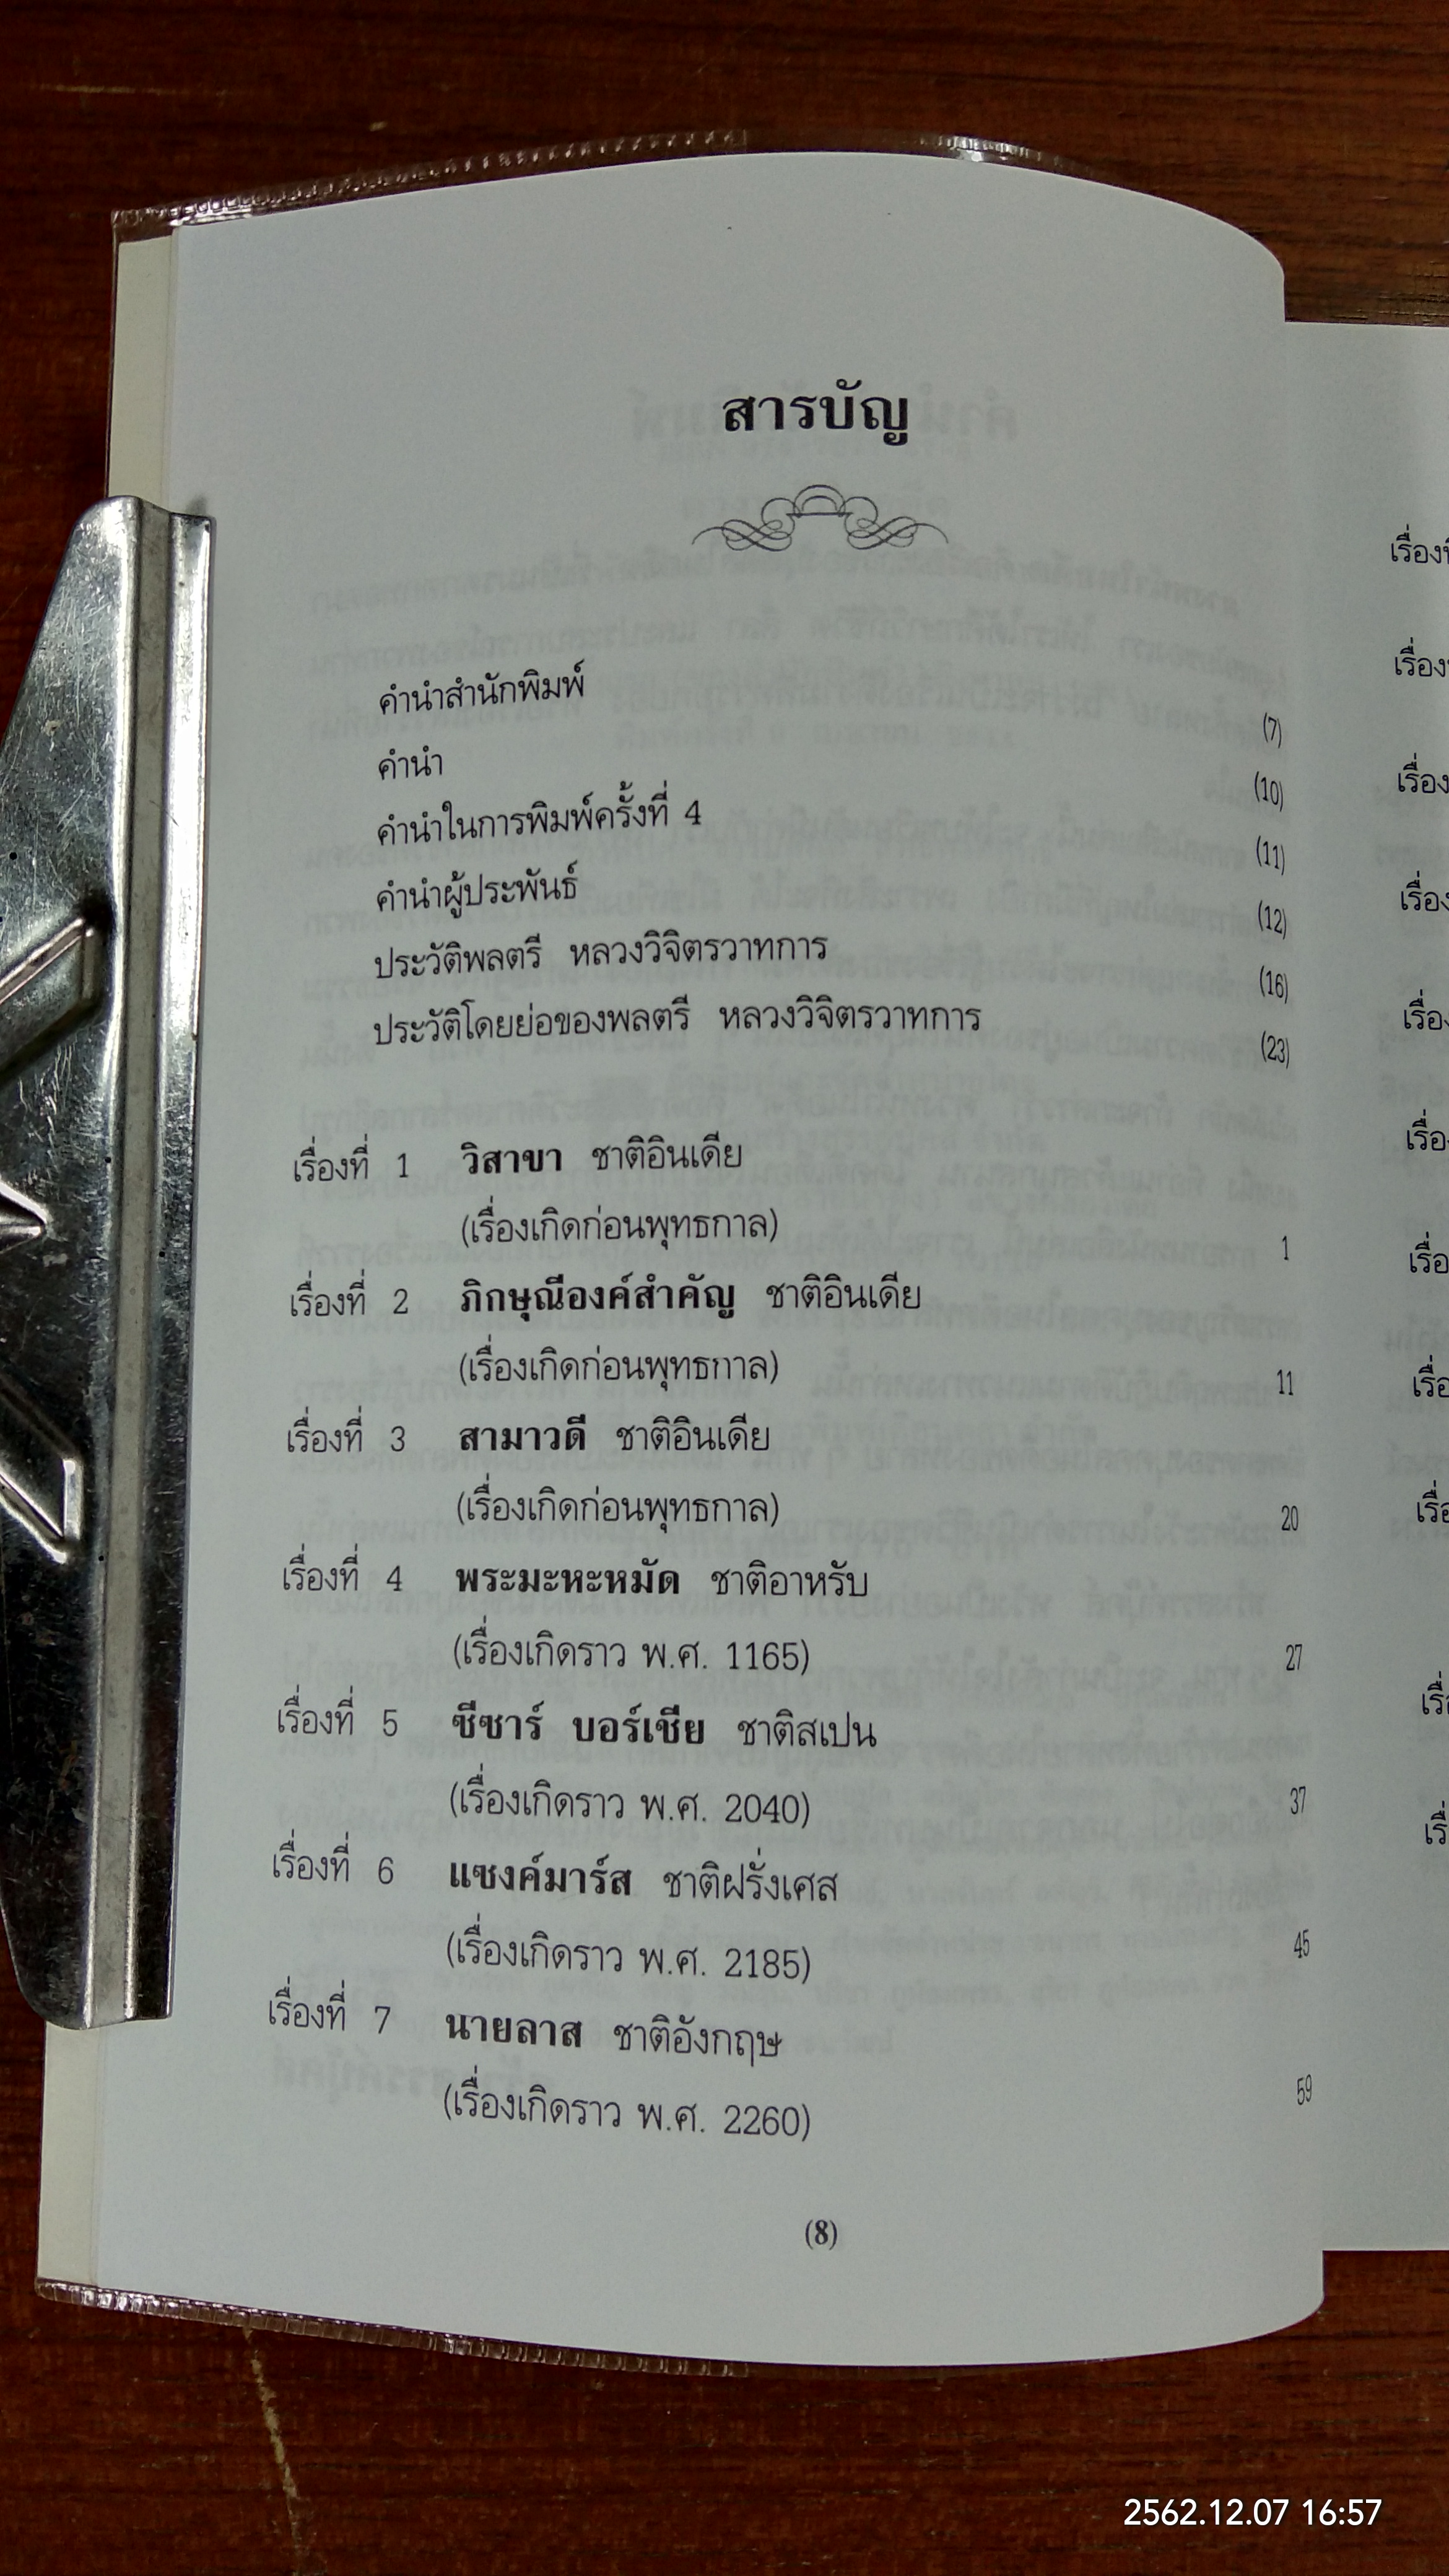 สารบัญ
คำนำสำนักพิมพ์ (7)
คำนำ (10)
คำนำในการพิมพ์ครั้งที่ 4 (11)
คำนำผู้ประพันธ์ (12)
ประวัติพลตรี หลวงวิจิตรวาทการ (16)
ประวัติโดยย่อของพลตรี หลวงวิจิตรวาทการ (23)
เรื่องที่ 1 วิสาขา ชาติอินเดีย
(เรื่องเกิดก่อนพุทธกาล) 1
เรื่องที่ 2 ภิกษุณีองค์สำคัญ ชาติอินเดีย
(เรื่องเกิดก่อนพุทธกาล) 11
เรื่องที่ 3 สามาวดี ชาติอินเดีย
(เรื่องเกิดก่อนพุทธกาล) 20
เรื่องที่ 4 พระมะหะหมัด ชาติอาหรับ
(เรื่องเกิดราว พ.ศ. 1165) 27
เรื่องที่ 5 ซีซาร์ บอร์เชีย ชาติสเปน
(เรื่องเกิดราว พ.ศ. 2040) 37
เรื่องที่ 6 แซงค์มาร์ส ชาติฝรั่งเศส
(เรื่องเกิดราว พ.ศ. 2185) 45
เรื่องที่ 7 นายลาส ชาติอังกฤษ
(เรื่องเกิดราว พ.ศ. 2260) 59
(8)
2562.12.07 16:57